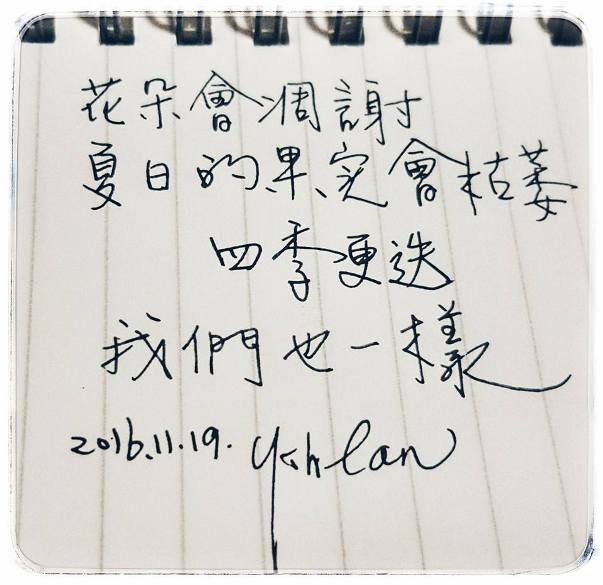 花朵會凋謝
夏日的果实會枯萎
四季更迭
我們也一樣
2016.11.19.